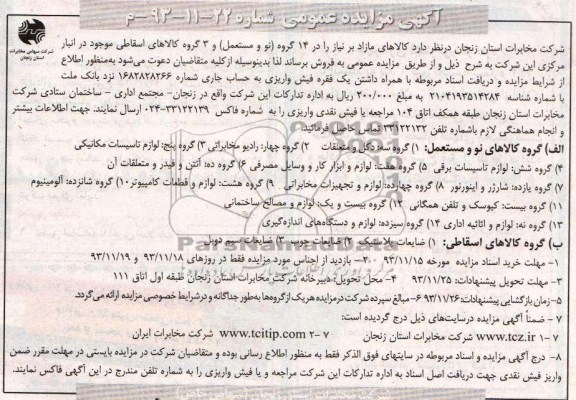 آگهی مزایده عمومی شماره ۲۲-۱۱-۹۳-م
شرکت سهامی مخابرات
استان زنجان
شرکت مخابرات استان زنجان درنظر دارد کالاهای مازاد بر نیاز را در ۱۴ گروه (نو و مستعمل) و ۳ گروه کالاهای اسقاطی موجود در انبار
مرکزی این شرکت به شرح ذیل و از طریق مزایده عمومی به فروش برساند لذا بدینوسیله از کلیه متقاضیان دعوت می‌شود به‌منظور اطلاع
از شرایط مزایده و دریافت اسناد مربوطه با همراه داشتن یک فقره فیش واریزی به حساب جاری شماره ۱۶۸۲۸۲۸۲۶۶ نزد بانک ملت
با شماره شناسه ۲۱۰۴۱۹۳۵۱۴۲۸۴ به مبلغ ۲۰۰/۰۰۰ ریال به اداره تدارکات این شرکت واقع در زنجان- مجتمع اداری - ساختمان ستادی شرکت
مخابرات استان زنجان طبقه همکف اتاق ۱۰۴ مراجعه یا فیش نقدی واریزی را به شماره فاکس ۳۳۱۲۲۱۳۹-۰۲۴ ارسال نمایند. جهت اطلاعات بیشتر
و انجام هماهنگی لازم باشماره تلفن ۳۳۱۲۲۱۳۲ تماس حاصل فرمائید.
الف) گروه کالاهای نو و مستعمل: ۱) گروه سه: دکل و متعلقات ۲) گروه چهار: رادیو مخابراتی ۳) گروه پنج: لوازم تاسیسات مکانیکی
۴) گروه شش: لوازم تاسیسات برقی ۵) گروه هفت: لوازم و ابزار کار و وسایل مصرفی ۶) گروه ده: آنتن و فیدر و متعلقات آن
۷) گروه یازده: شارژر و اینورتور ۸) گروه چهارده: لوازم و تجهیزات مخابراتی ۹) گروه هشت: لوازم و قطعات کامپیوتر ۱۰) گروه شانزده: آلومینیوم
۱۱) گروه بیست: کیوسک و تلفن همگانی ۱۲) گروه بیست و یک: لوازم و مصالح ساختمانی
۱۳) گروه نه: لوازم و اثاثیه اداری ۱۴) گروه سیزده: لوازم و دستگاه‌های اندازه‌گیری
ب) گروه کالاهای اسقاطی: ۱) ضایعات پلاستیکی ۲) ضایعات چوب ۳) ضایعات سیم دوبل
۱- مهلت خرید اسناد مزایده مورخه ۹۳/۱۱/۱۵ ۲- بازدید از اجناس مورد مزایده فقط در روزهای ۹۳/۱۱/۱۸ و ۹۳/۱۱/۱۹
۳- مهلت تحویل پیشنهادات: ۹۳/۱۱/۲۵ ۴- محل تحویل: دبیرخانه شرکت مخابرات استان زنجان طبقه اول اتاق ۱۱۱
۵- زمان بازگشایی پیشنهادات: ۹۳/۱۱/۲۶ ۶- مبالغ سپرده شرکت در مزایده هریک از گروه‌ها به‌طور جداگانه و در شرایط خصوصی مزایده ارائه می‌گردد.
۷ - ضمناً آگهی مزایده درسایت‌های ذیل درج گردیده است:
۷-۱ www.tcz.ir شرکت مخابرات استان زنجان ۷-۲ www.tcitip.com شرکت مخابرات ایران
۸- درج آگهی مزایده و اسناد مربوطه در سایتهای فوق الذکر فقط به منظور اطلاع رسانی بوده و متقاضیان شرکت در مزایده بایستی در مهلت مقرر ضمن
واریز فیش نقدی جهت دریافت اصل اسناد به اداره تدارکات این شرکت مراجعه و یا فیش واریزی را به شماره تلفن مندرج در این آگهی فاکس نمایند.